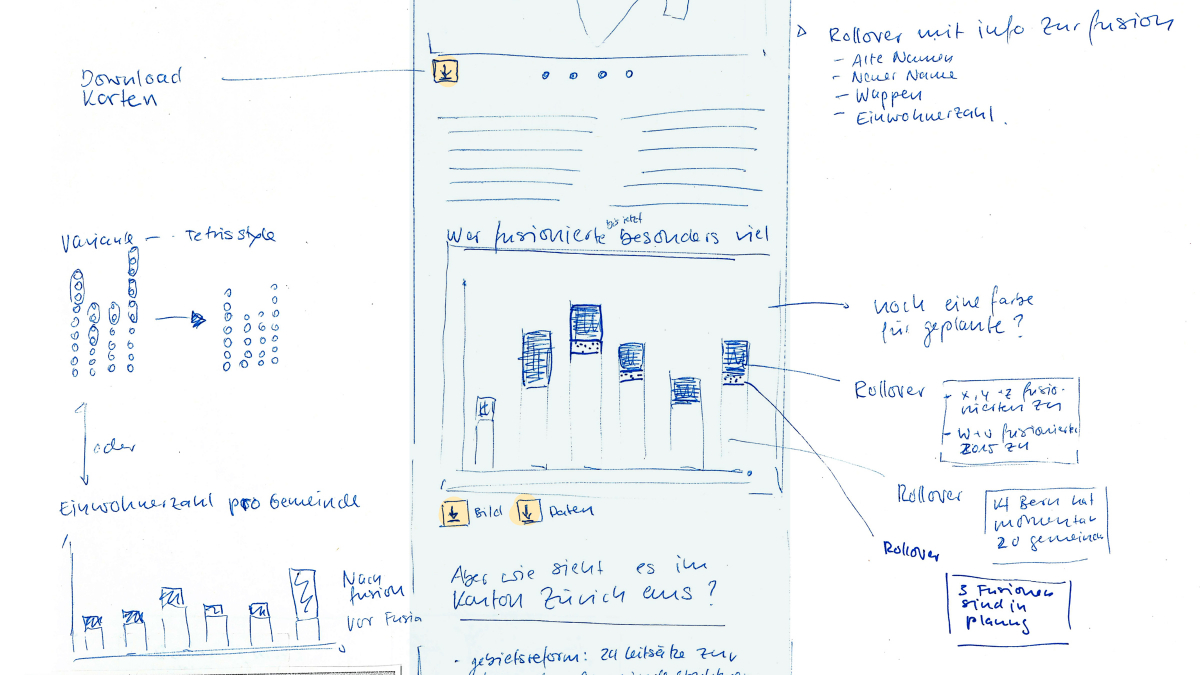 Rollover mit info zur fusion
- Alte Namen
- Neuer Name
- Wappen
- Einwohnerzahl.
Download
Karten
Variante - Tetrisstyle
bis jetzt
Wer fusionierte besonders viel
noch eine farbe
für geplante?
Rollover
- x, y + z fusio-
nierten zu
- W + v fusionierte
2015 zu
oder
Einwohnerzahl pro Gemeinde
Rollover
Kt Bern hat
momentan
20 gemeinde
Bild
Daten
Rollover
Nach
fusion
vor Fusio
Aber wie sieht es im
Kanton Zürich aus?
3 Fusionen
sind in
planung
- gebietsreform: 24 leitsätze zur